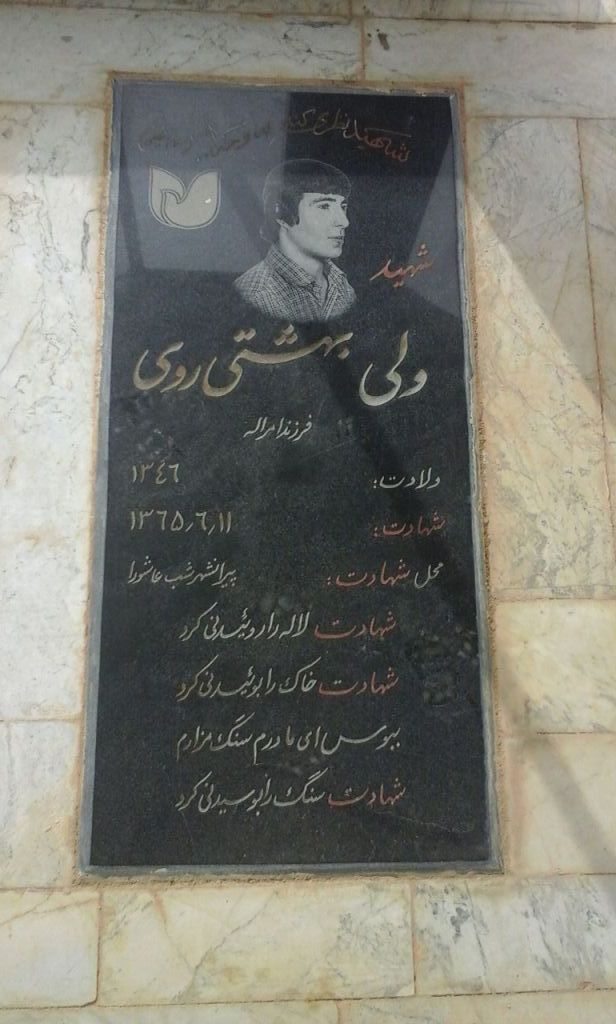 شهید نظر می کند به وجه الله
شهید
ولی بهشتی روی
فرزند امراله
ولادت: ۱۳٤٦
شهادت: ۱۳٦۵٫٦٫۱۱
محل شهادت: پیرانشهر شب عاشورا
شهادت لاله را روئیدنی کرد
شهادت خاک را بوئیدنی کرد
ببوس ای مادرم سنگ مزارم
شهادت سنگ را بوسیدنی کرد